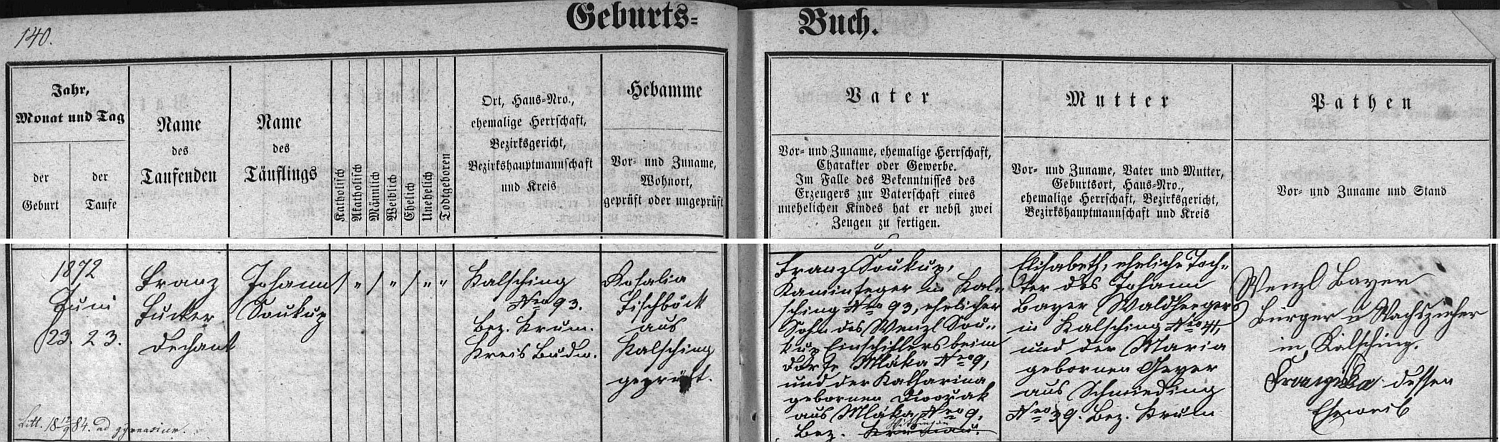 140.
Geburts=
Buch.
Jahr,
Monat und Tag
der
Geburt
der
Taufe
Name
des
Taufenden
Name
des
Täuflings
Katholisch
Akatholisch
Männlich
Weiblich
Ehelich
Unehelich
Todtgeboren
Ort, Haus=Nro.,
ehemalige Herrschaft,
Bezirksgericht,
Bezirkshauptmannschaft
und Kreis
Hebamme
Vor= und Zuname,
Wohnort,
geprüft oder ungeprüft
Vater
Vor= und Zuname, ehemalige Herrschaft,
Charakter oder Gewerbe.
Im Falle des Bekenntnisses des
Erzeugers zur Vaterschaft eines
unehelichen Kindes hat er nebst zwei
Zeugen zu fertigen.
Mutter
Vor= und Zuname, Vater und Mutter,
Geburtsort, Haus=Nro.,
ehemalige Herrschaft, Bezirksgericht,
Bezirkshauptmannschaft und Kreis
Pathen
Vor= und Zuname und Stand
1872
Juni
23. 23.
Litt. 18 84. ad gymnasium.
Franz
Tucker
Dechant
Johann
Soukup
/ " / " / " "
Kalsching
Nro 93.
Bez. Krum.
Kreis Budw.
Rosalia
Fischböck
aus
Kalsching
geprüft.
Franz Soukup,
Kaminfeger in Kal=
sching Nro 93, ehelicher
Sohn des Wenzl Sou=
kup, beim
Mlaka Nro 9,
und der Katharina
gebornen Dworžak
aus Mlaka, Nro 9,
Bez. Krumau.
Elisabeth, eheliche Toch=
ter des Johann
Bayer Waldhegers
in Kalsching Nro 41
und der Maria
gebornen Geyer
aus Schmieding
Nro 39. Bez. Krum
Wenzl Bayer
Bürger u Wachszieher
in Kalsching.
Franziska dessen
Eheweib